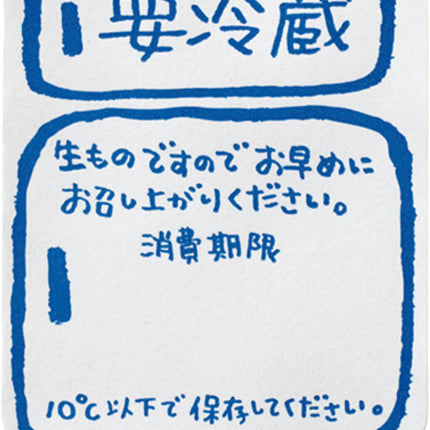 要冷蔵
生ものですのでお早めに
お召し上がりください。
消費期限
10℃以下で保存してください。